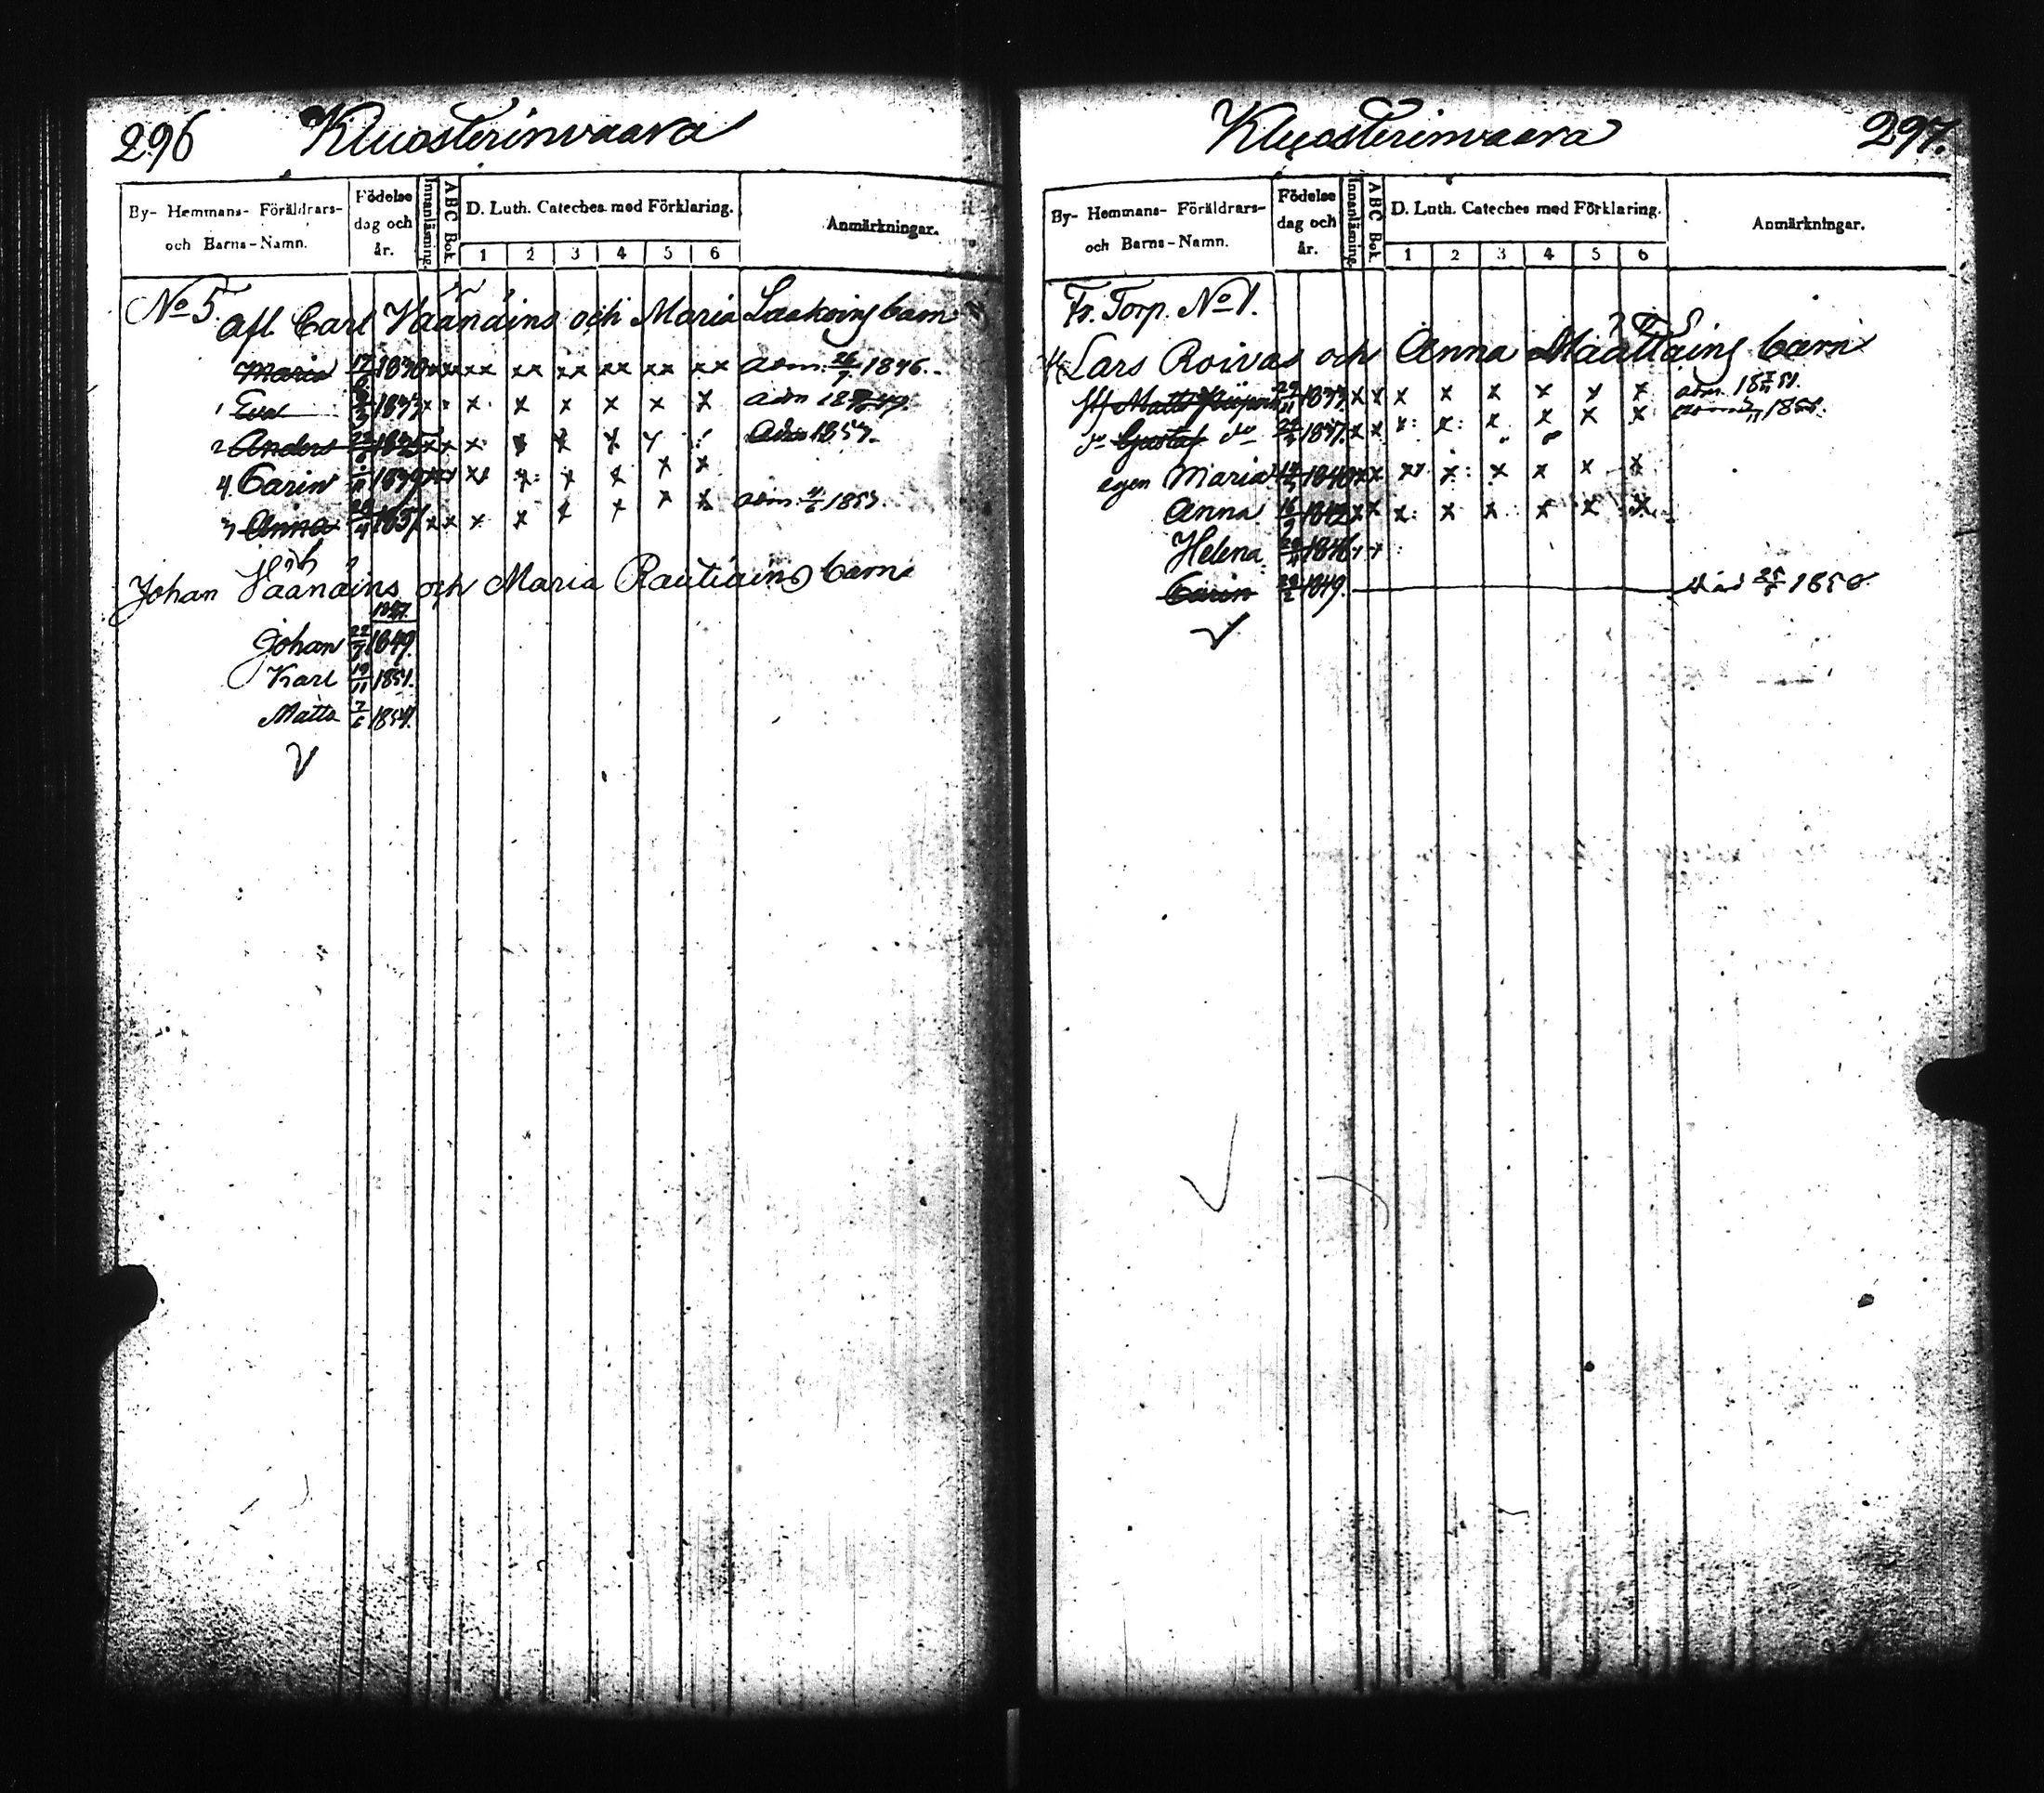 296 Kluosterinvaara
By- Hemmans- Föräldrars- och Barns-Namn. Födelse dag och år. Innanläsning. ABC Bok D. Luth. Cateches med Förklaring. Anmärkningar.
1 2 3 4 5 6
No 5.
afl Carl Väänäins och Maria Laakoins barn
Maria 17/6 xx xx xx xx xx xx xx adm. 26/7 1846.
1 Eva x x x x x x adm
2 Anders x x x x adm 1857.
4. Carin 1839 x x x x x x
3 Anna x x x x x x adm. 1853.
Johan Väänäins och Maria Rautiains barn
1847.
Johan 22/7 1849.
Karl 19/11 1851.
Matts 7/6 1854.
V
Kluosterinvaara 297.
By- Hemmans- Föräldrars- och Barns-Namn. Födelse dag och år. Innanläsning. ABC Bok D. Luth. Cateches med Förklaring. Anmärkningar.
1 2 3 4 5 6
Fr. Torp. No 1.
Lars Roivas och Anna Määttäins barn
Matts x x x x x x x x adm.
do Gustaf do 1837. x x x x x x x x
egen Maria 1840 x x x x x x x x
Anna 16/9 1842 x x x x x x x x
Helena
Carin 22/2 1849. död 25/5 1850
V